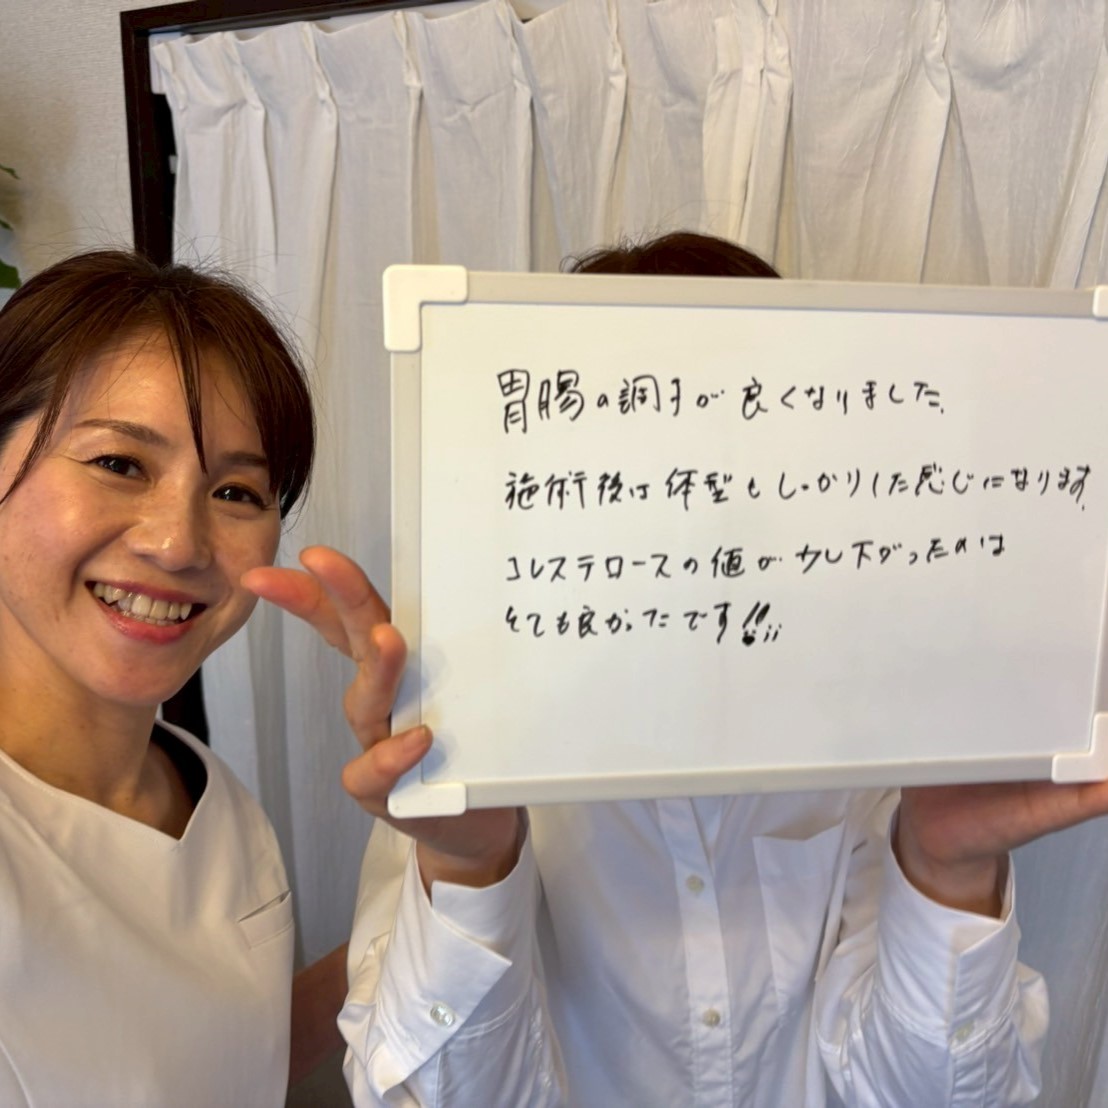 胃腸の調子が良くなりました。
施術後は体型もしっかりした感じになります。
コレステロースの値が少し下がったのは
とても良かったです!!